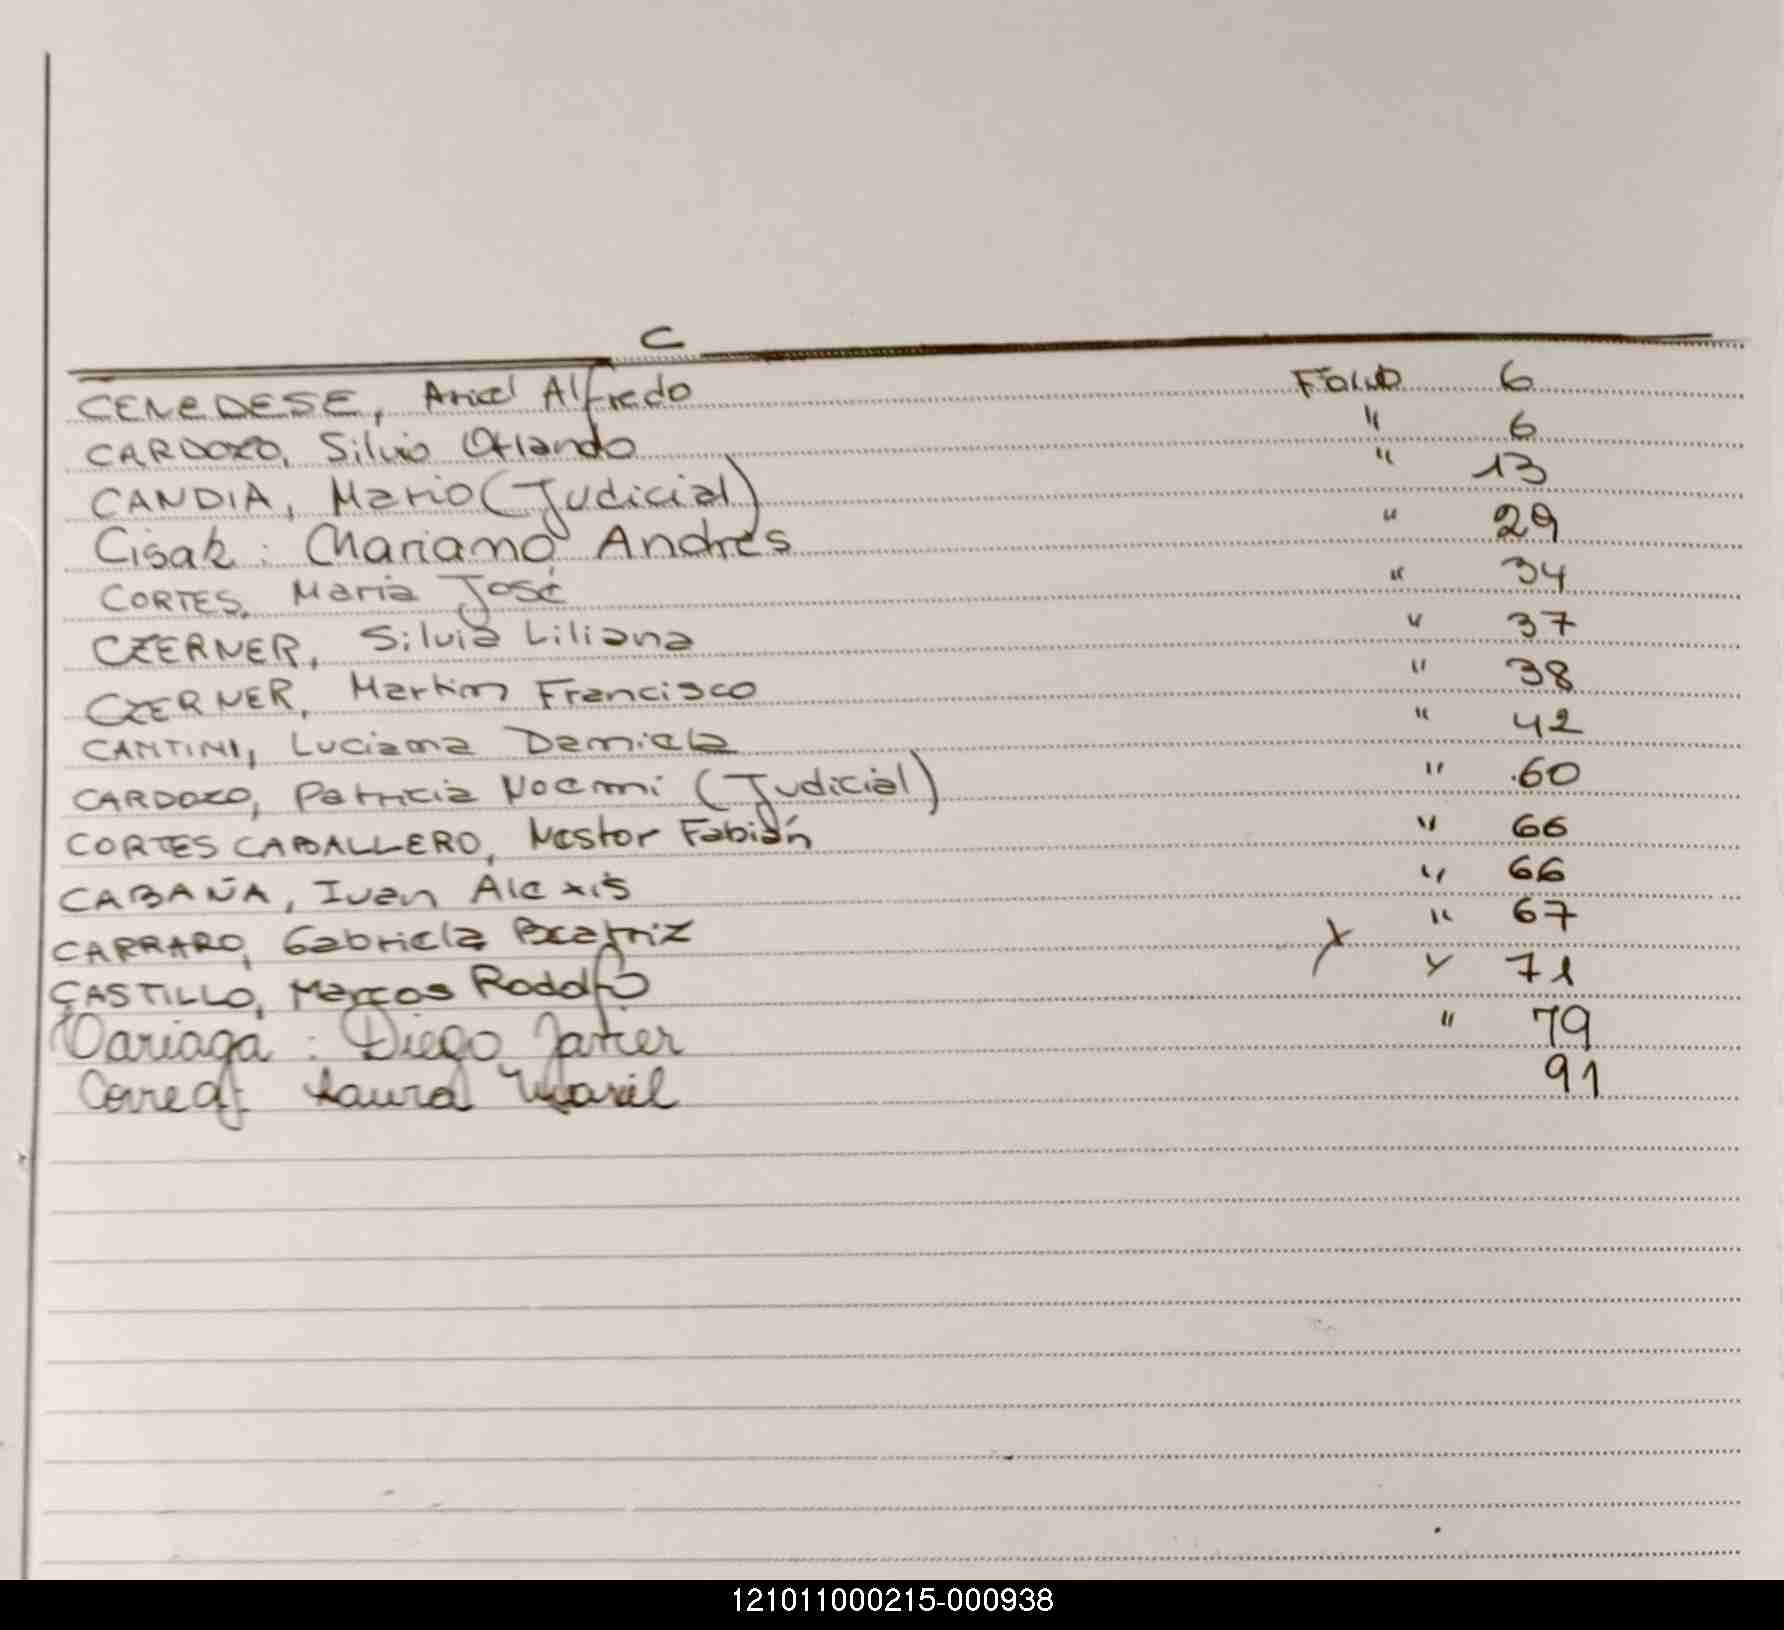 C
CENEDESE, Ariel Alfredo Folio 6
CARDOZO, Silvio Orlando " 6
CANDIA, Mario (Judicial) " 13
Cisak: Mariano Andrés " 29
CORTES, Maria José " 34
CZERNER, Silvia Liliana " 37
CZERNER, Martin Francisco " 38
CANTINI, Luciana Daniela " 42
CARDOZO, Patricia Noemi (Judicial) " 60
CORTES CABALLERO, Nestor Fabián " 66
CABAÑA, Ivan Alexis " 66
CARRARO, Gabriela Beatriz " 67
CASTILLO, Marcos Rodolfo " 71
Cariaga: Diego Javier " 79
Correa: Laura 91
121011000215-000938